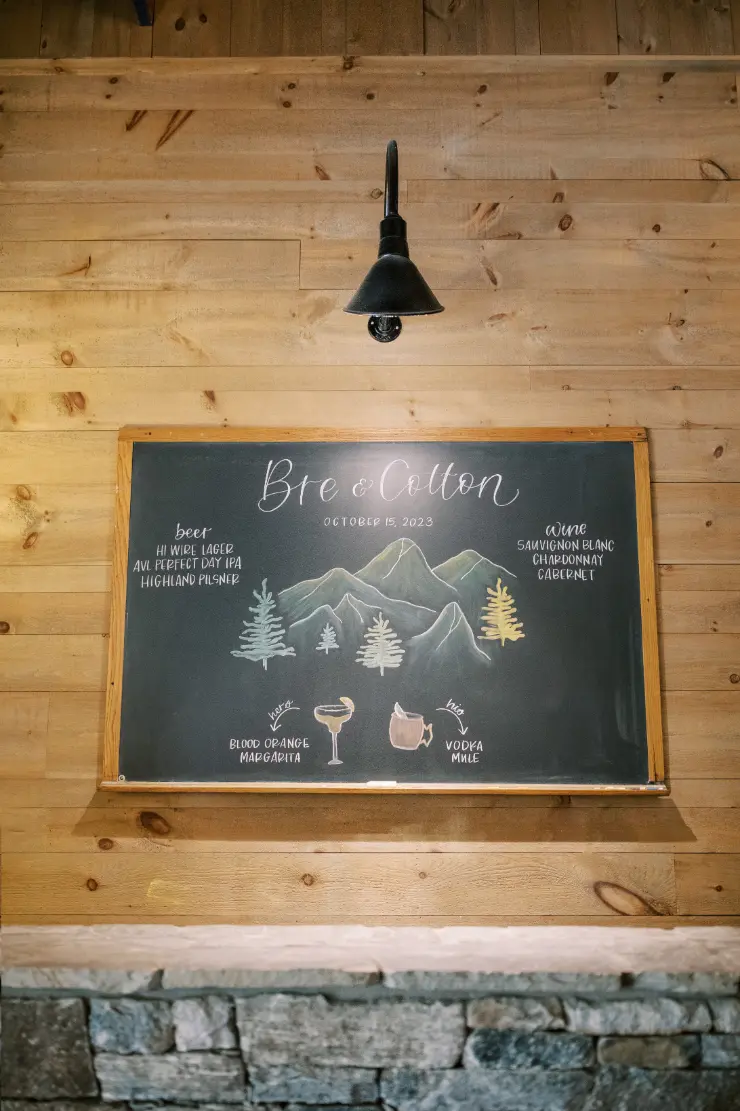 Bre & Colton
OCTOBER 15, 2023
beer
HI WIRE LAGER
AVL PERFECT DAY IPA
HIGHLAND PILSNER
wine
SAUVIGNON BLANC
CHARDONNAY
CABERNET
hers
BLOOD ORANGE
MARGARITA
his
VODKA
MULE